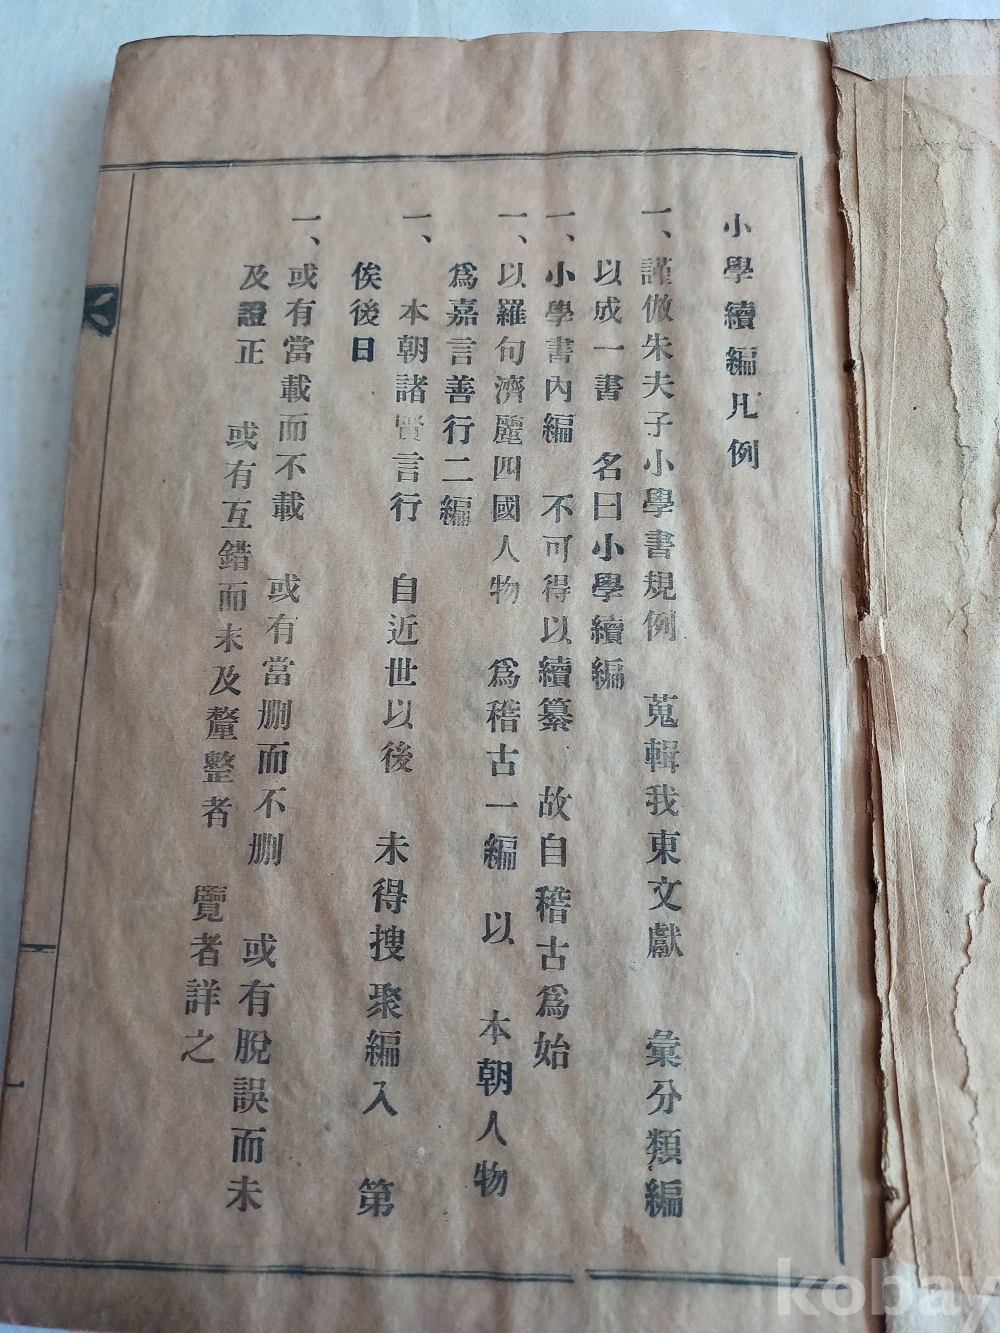 小學續編凡例
一、謹倣朱夫子小學書規例 蒐輯我東文獻 彙分類編
以成一書 名曰小學續編
一、小學書內編 不可得以續纂 故自稽古爲始
一、以羅句濟麗四國人物 爲稽古一編 以 本朝人物
爲嘉言善行二編
一、 本朝諸賢言行 自近世以後 未得搜聚編入 第
俟後日
一、或有當載而不載 或有當刪而不刪 或有脫誤而未
及證正 或有互錯而未及釐整者 覽者詳之
一
kobay